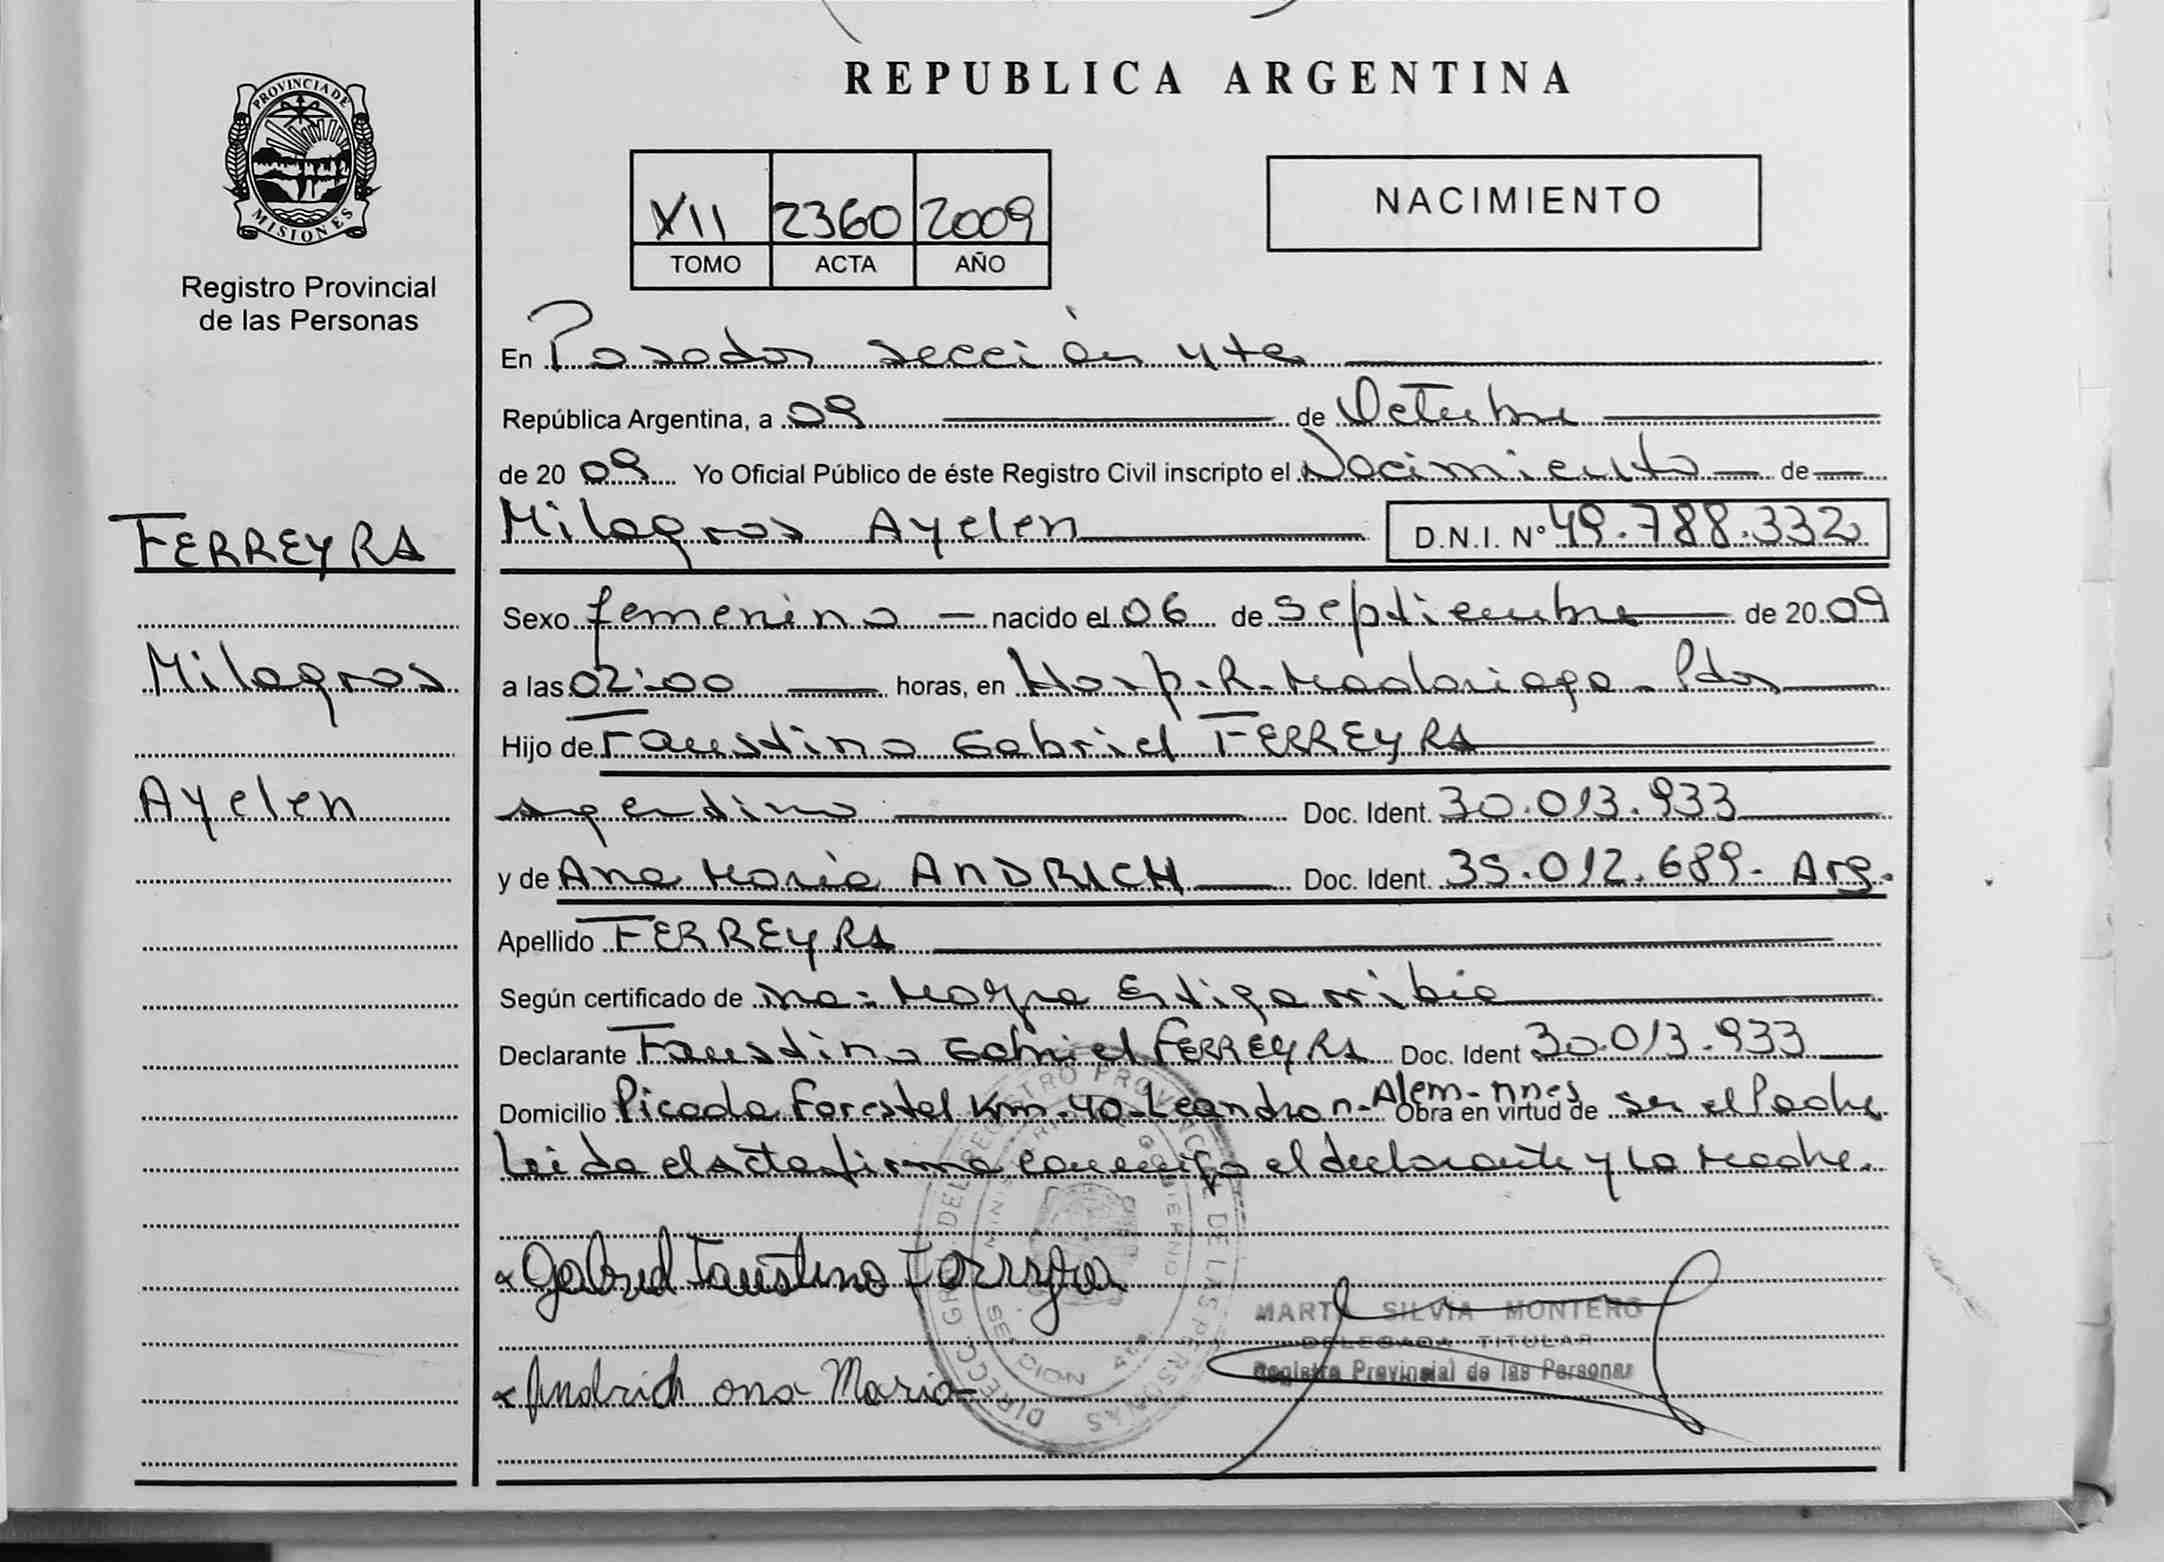 PROVINCIA DE
MISIONES
Registro Provincial
de las Personas
FERREYRA
Milagros
Ayelen
REPUBLICA ARGENTINA
XII 2360 2009
TOMO ACTA AÑO
NACIMIENTO
En Posadas sección 4ta
República Argentina, a 09 de Octubre
de 20 09 Yo Oficial Público de éste Registro Civil inscripto el Nacimiento de
Milagros Ayelen D.N.I. N° 49.788.332
Sexo femenino nacido el 06 de Septiembre de 20 09
a las 02:00 horas, en Hosp. R. Madariaga - Pdas
Hijo de Faustino Gabriel FERREYRA
argentino Doc. Ident. 30.013.933
y de Ana Maria ANDRICH Doc. Ident. 35.012.689 - Arg.
Apellido FERREYRA
Según certificado de Mayra Estigarribia
Declarante Faustino Gabriel FERREYRA Doc. Ident 30.013.933
Domicilio Picada Forestal Km. 40 - Leandro n. Alem - Mnes Obra en virtud de ser el Padre
Leida el acta firma conmigo el declarante y la Madre.
Gabriel Faustino Ferreyra
MARTA SILVIA MONTERO
DELEGADA TITULAR
Registro Provincial de las Personas
Andrich ana Maria
DIRECC. GRAL. DEL REGISTRO PROVINCIAL DE LAS PERSONAS
MINISTERIO DE GOBIERNO
SECCION 4ta